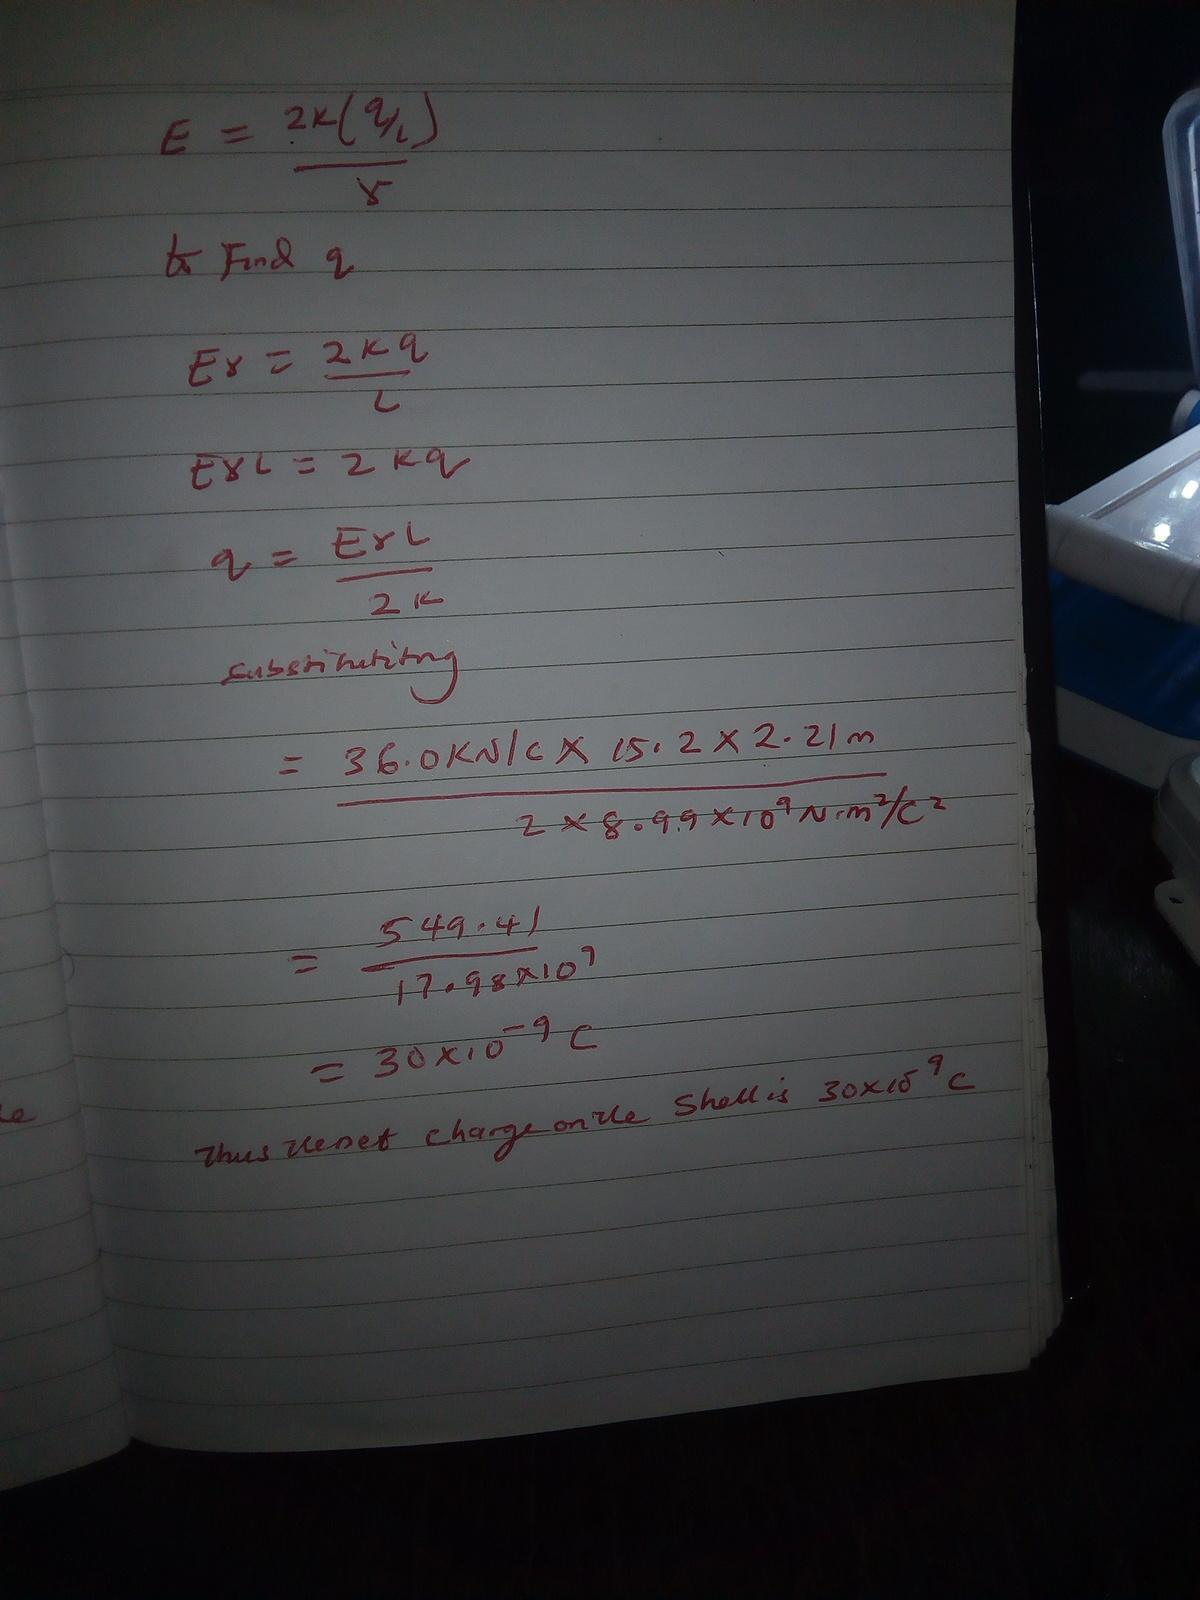 E = 2k(q/L)
r
to Find q
Er = 2kq
L
ErL = 2kq
q = ErL
2k
substitutitng
= 36.0KN/C × 15.2 × 2.21m
2 × 8.99 × 10⁹ N·m²/C²
= 549.41
17.98×10⁹
= 30×10⁻⁹ C
Thus the net charge on the Shell is 30×10⁻⁹C